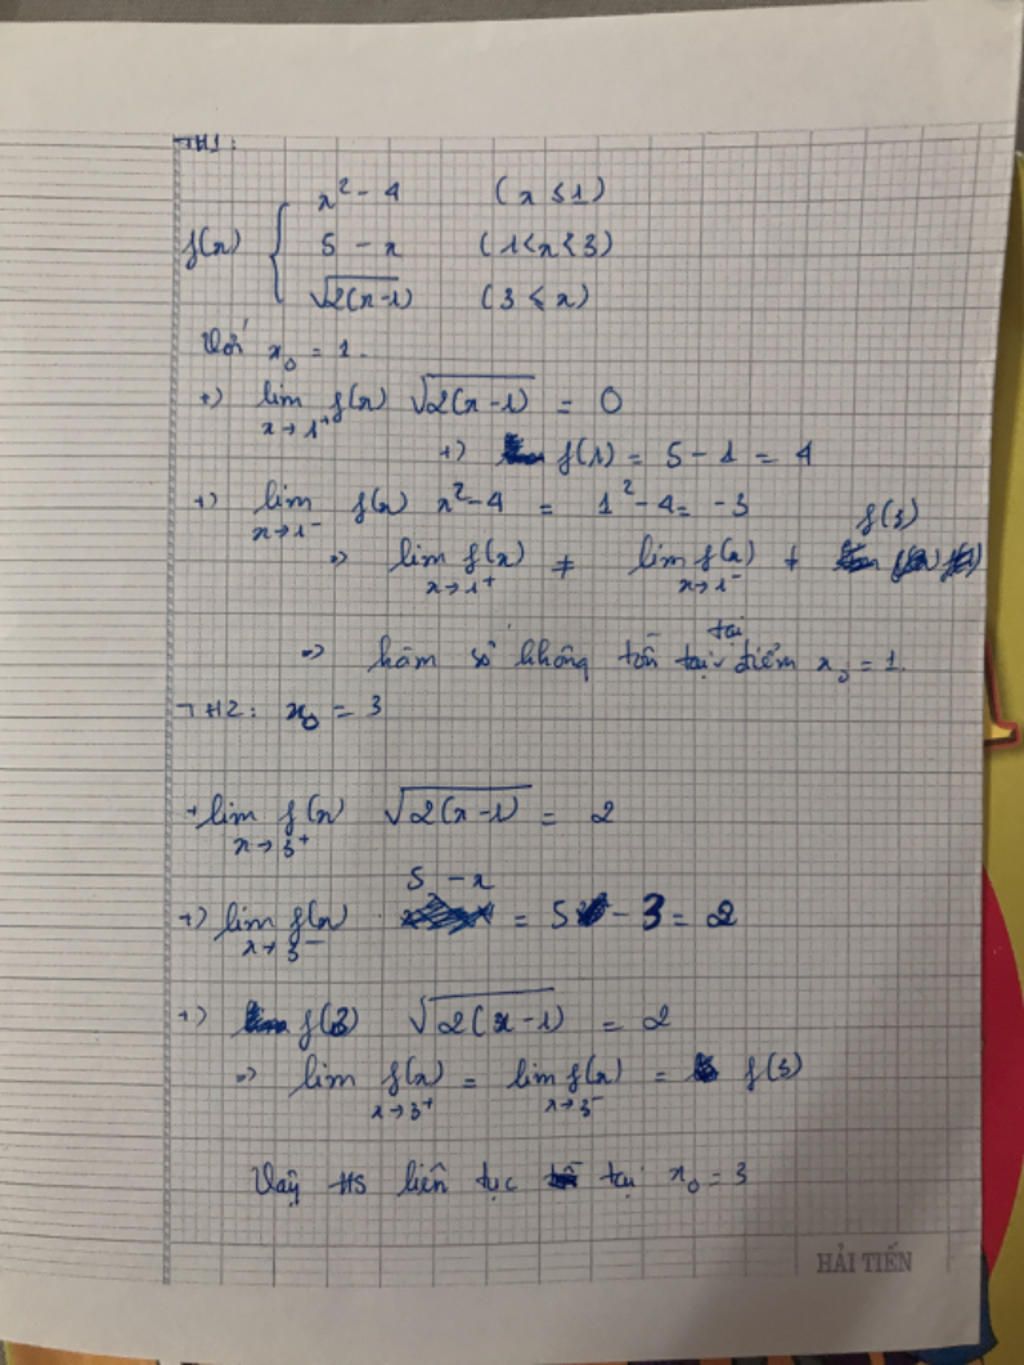 TH1:
x² - 4 (x ≤ 1)
f(x) { 5 - x (1 < x < 3)
√2(x-1) (3 ≤ x)
Với x₀ = 1.
+) lim x→1⁺ f(x) √2(x-1) = 0
+) f(1) = 5 - 1 = 4
+) lim x→1⁻ f(x) x² - 4 = 1² - 4 = -3
f(3)
=> lim x→1⁺ f(x) ≠ lim x→1⁻ f(x) ≠
tại
=> hàm số không tồn tại điểm x₀ = 1.
TH2: x₀ = 3
+ lim x→3⁺ f(x) √2(x-1) = 2
5 - x
+) lim x→3⁻ f(x) = 5 - 3 = 2
+) f(3) √2(x-1) = 2
=> lim x→3⁺ f(x) = lim x→3⁻ f(x) = f(3)
Vậy HS liên tục tại x₀ = 3
HẢI TIẾN